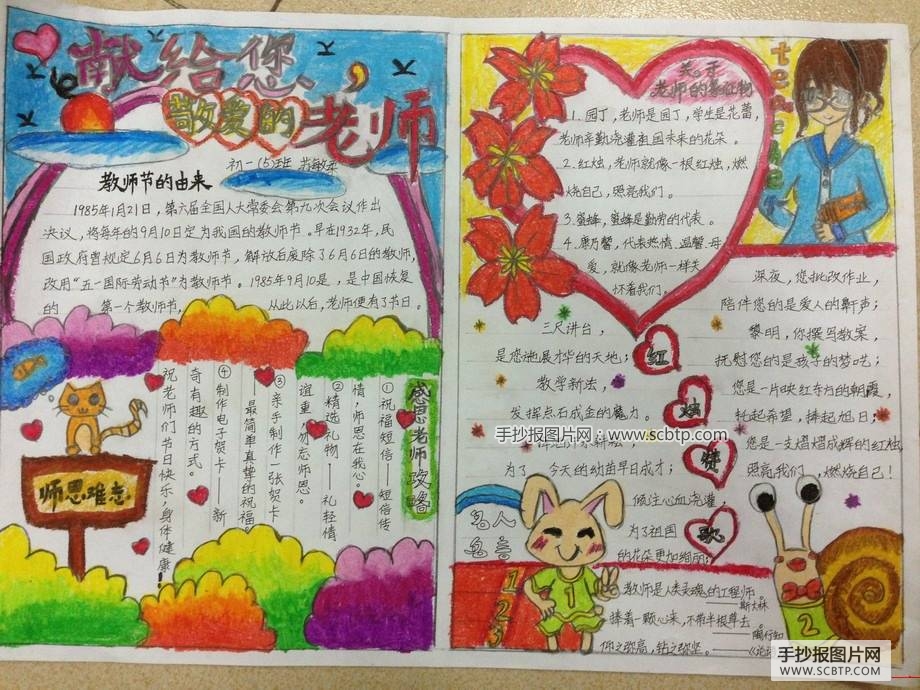 献给您、
敬爱的老师
初一(5)班
教师节的由来
1985年1月21日，第六届全国人大常委会第九次会议作出
决议，将每年的9月10日定为我国的教师节。早在1932年，民
国政府曾规定6月6日为教师节，解放后废除了6月6日的教师，
改用“五一国际劳动节”为教师节。1985年9月10是，是中国恢复
的 第一个教师节， 从此以后，老师便有了节日。
感恩老师攻略
①祝福短信——短信传
情，师恩在我心。
②精选礼物——礼轻情
谊重，勿忘师恩。
③亲手制作一张贺卡
——最简单真挚的祝福
④制作电子贺卡——新
奇有趣的方式。
祝老师们节日快乐、身体健康！
师恩难忘
关于
老师的象征物
1.园丁，老师是园丁，学生是花蕾，
老师辛勤浇灌祖国未来的花朵。
2.红烛，老师就像一根红烛，燃
烧自己，照亮我们。
3.蜜蜂，蜜蜂是勤劳的代表。
4.康乃馨，代表热情、温馨、母
爱，就像老师一样关
怀着我们。
红烛赞歌
三尺讲台，
是您施展才华的天地；
教学新法，
发挥点石成金的魔力。
为了 今天的幼苗早日成才；
倾注心血浇灌，
为了祖国
的花朵更加绚丽；
深夜，您批改作业，
陪伴您的是爱人的鼾声；
黎明，你撰写教案，
抚慰您的是孩子的梦呓；
您是一片映红东方的朝霞，
托起希望，捧起旭日；
您是一支熠熠成辉的红烛，
照亮我们，燃烧自己！
名人名言
教师是人类灵魂的工程师。
——斯大林
捧着一颗心来，不带半根草去。
——陶行知
仰之弥高，钻之弥坚。
1
2
3
1
2
手抄报图片网：www.scbtp.com
手抄报图片网
WWW.SCBTP.COM